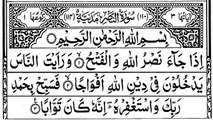 اٰیاتها ۳ (۱۱۰) سُوْرَةُ النَّصْرِ مَدَنِيَّةٌ (۱۱۴) رُكُوْعُهَا ۱
بِسْمِ اللّٰهِ الرَّحْمٰنِ الرَّحِيْمِ
اِذَا جَآءَ نَصْرُ اللّٰهِ وَ الْفَتْحُ ۙ وَ رَاَيْتَ النَّاسَ
يَدْخُلُوْنَ فِيْ دِيْنِ اللّٰهِ اَفْوَاجًا ۙ فَسَبِّحْ بِحَمْدِ
رَبِّكَ وَ اسْتَغْفِرْهُ ؔ اِنَّهٗ كَانَ تَوَّابًا